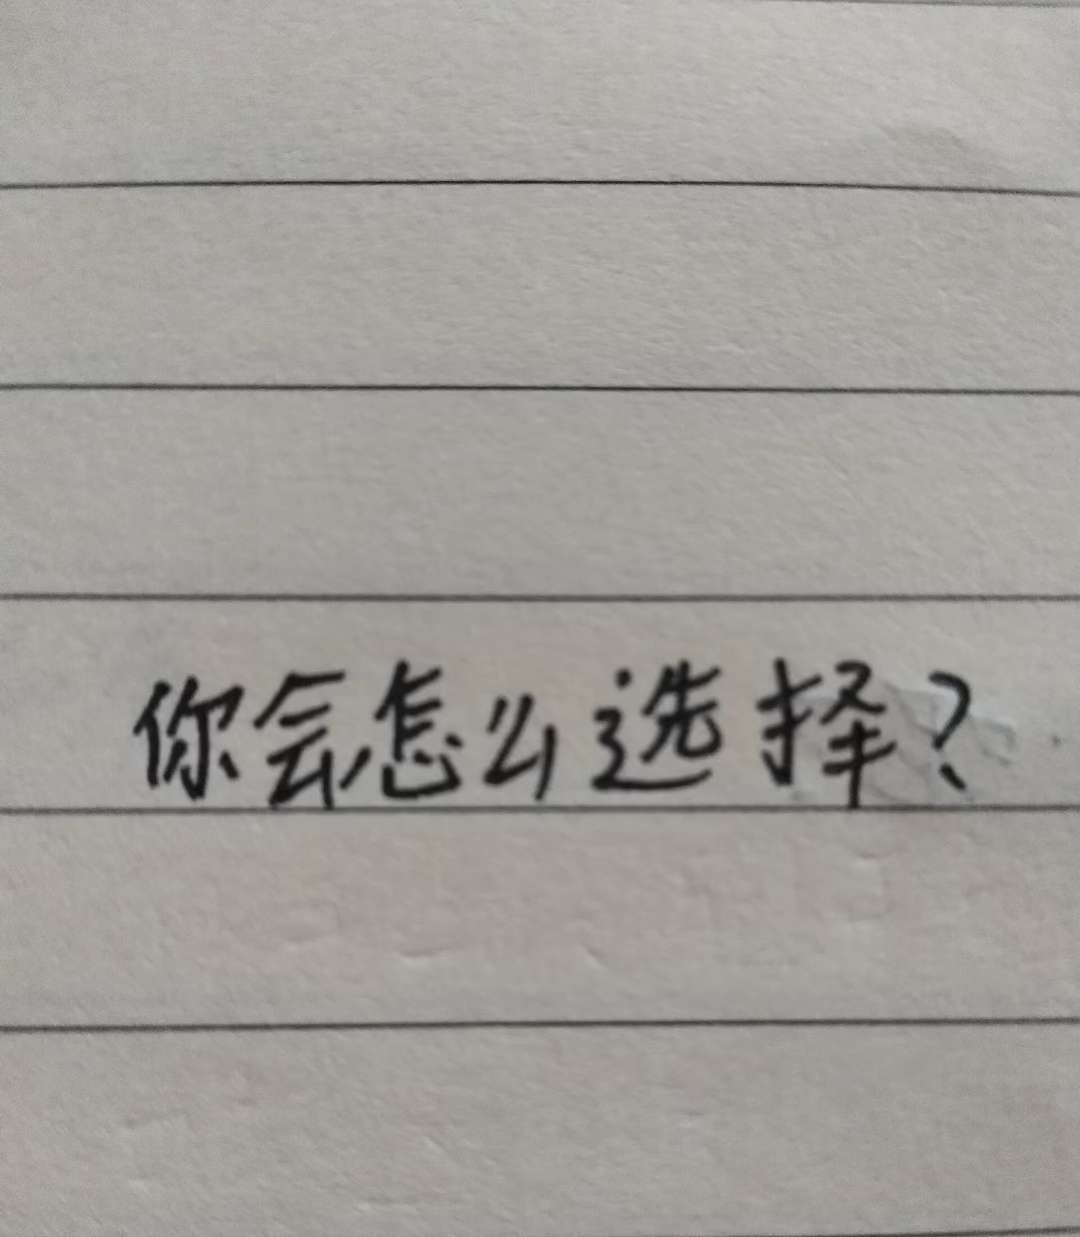 你会怎么选择？